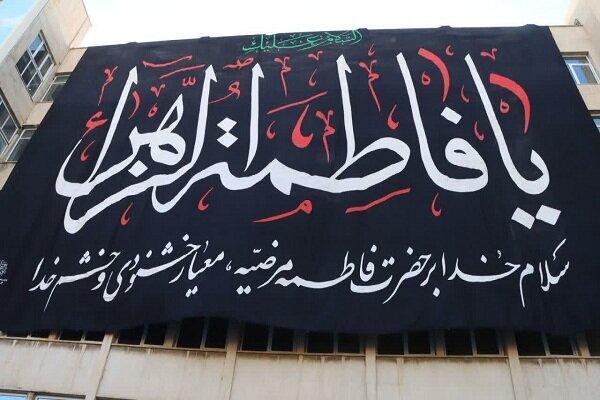 السلام علیک
یا فاطمة الزهرا
سلام خدا بر حضرت فاطمه مرضیّه، معیار خشنودی و خشم خدا